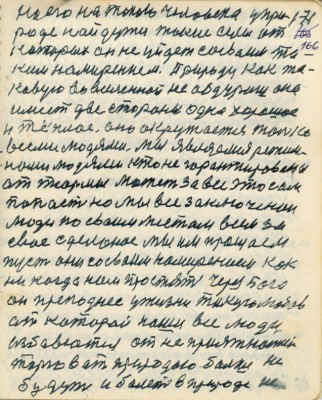 на его на такого человека у при-
роде найдутся такие силы от
которых он не уйдет со своим та-
ким намирением. Природу как та-
кавую во вселенной не абдуриш она
имеет две стороны одна хорошое
и тёплое. оно окружается только
всеми людями. мы являдаемся
нами людями кто не гарантированы
от тюрмы может за все это сам
попасть но мы все заключеной
люди по своим местам всем за
свое сделоное мы им прощаем
пуст они со своим намирением как
ни когда нам простят Через Бога
он преподнес у жизни такую любов
от которой наши все люди
избавются от не приятностей
торговат природою балки не
будут и болет в природе не
171
166